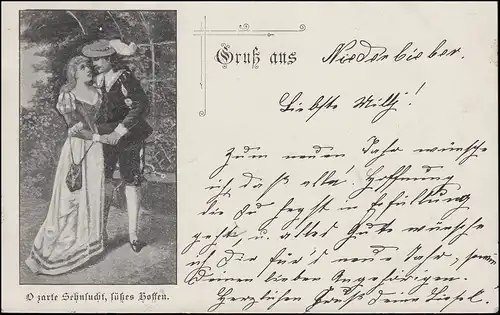 Gruß aus Niederbieber.
Liebste Milly!
Zum neuen Jahr wünsche
ich, daß alle Hoffnung
die Du hegst in Erfüllung
geht, u. alles Gute wünsche
ich Dir für's neue Jahr, sowie
Deinen lieben Angehörigen.
Herzlichen Gruß Deine Liesel.
O zarte Sehnsucht, süßes Hoffen.